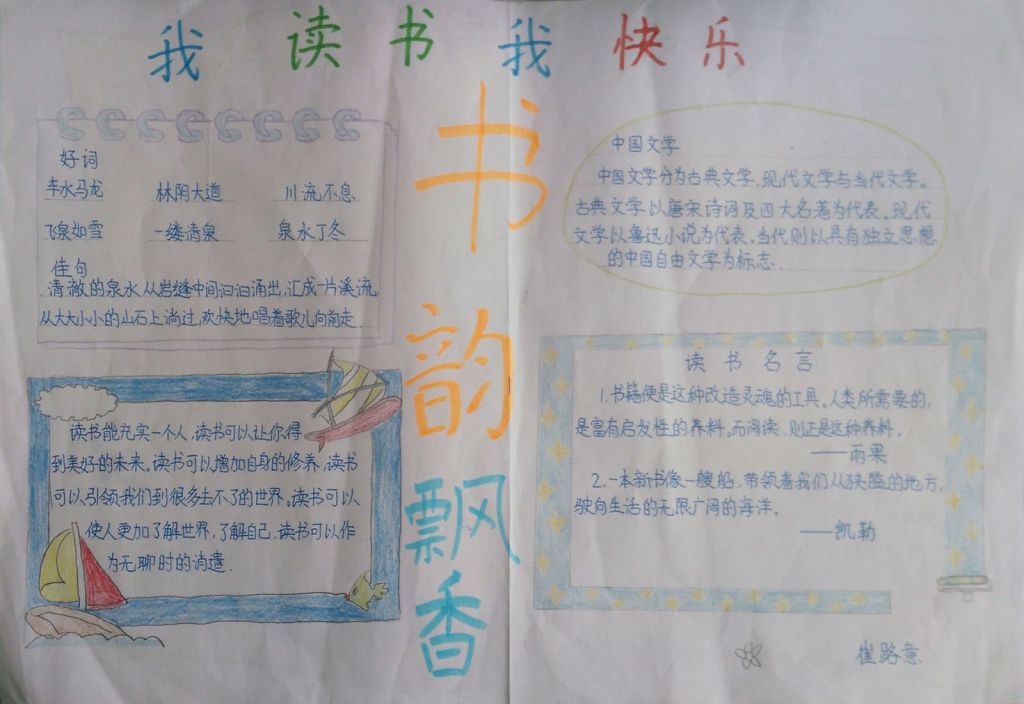 我读书我快乐
书韵飘香
好词
车水马龙 林阴大道 川流不息
飞泉如雪 一缕清泉 泉水丁冬
佳句
清澈的泉水从岩缝中间汩汩涌出,汇成一片溪流,
从大大小小的山石上淌过,欢快地唱着歌儿向前走.
读书能充实一个人,读书可以让你得
到美好的未来。读书可以增加自身的修养,读书
可以引领我们到很多去不了的世界。读书可以
使人更加了解世界,了解自己.读书可以作
为无聊时的消遣.
中国文学
中国文学分为古典文学.现代文学与当代文学。
古典文学以唐宋诗词及四大名著为代表。现代
文学以鲁迅小说为代表。当代则以具有独立思想
的中国自由文学为标志.
读书名言
1.书籍便是这种改造灵魂的工具。人类所需要的,
是富有启发性的养料。而阅读,则正是这种养料。
——雨果
2.一本新书像一艘船,带领着我们从狭隘的地方,
驶向生活的无限广阔的海洋.
——凯勒
崔路意